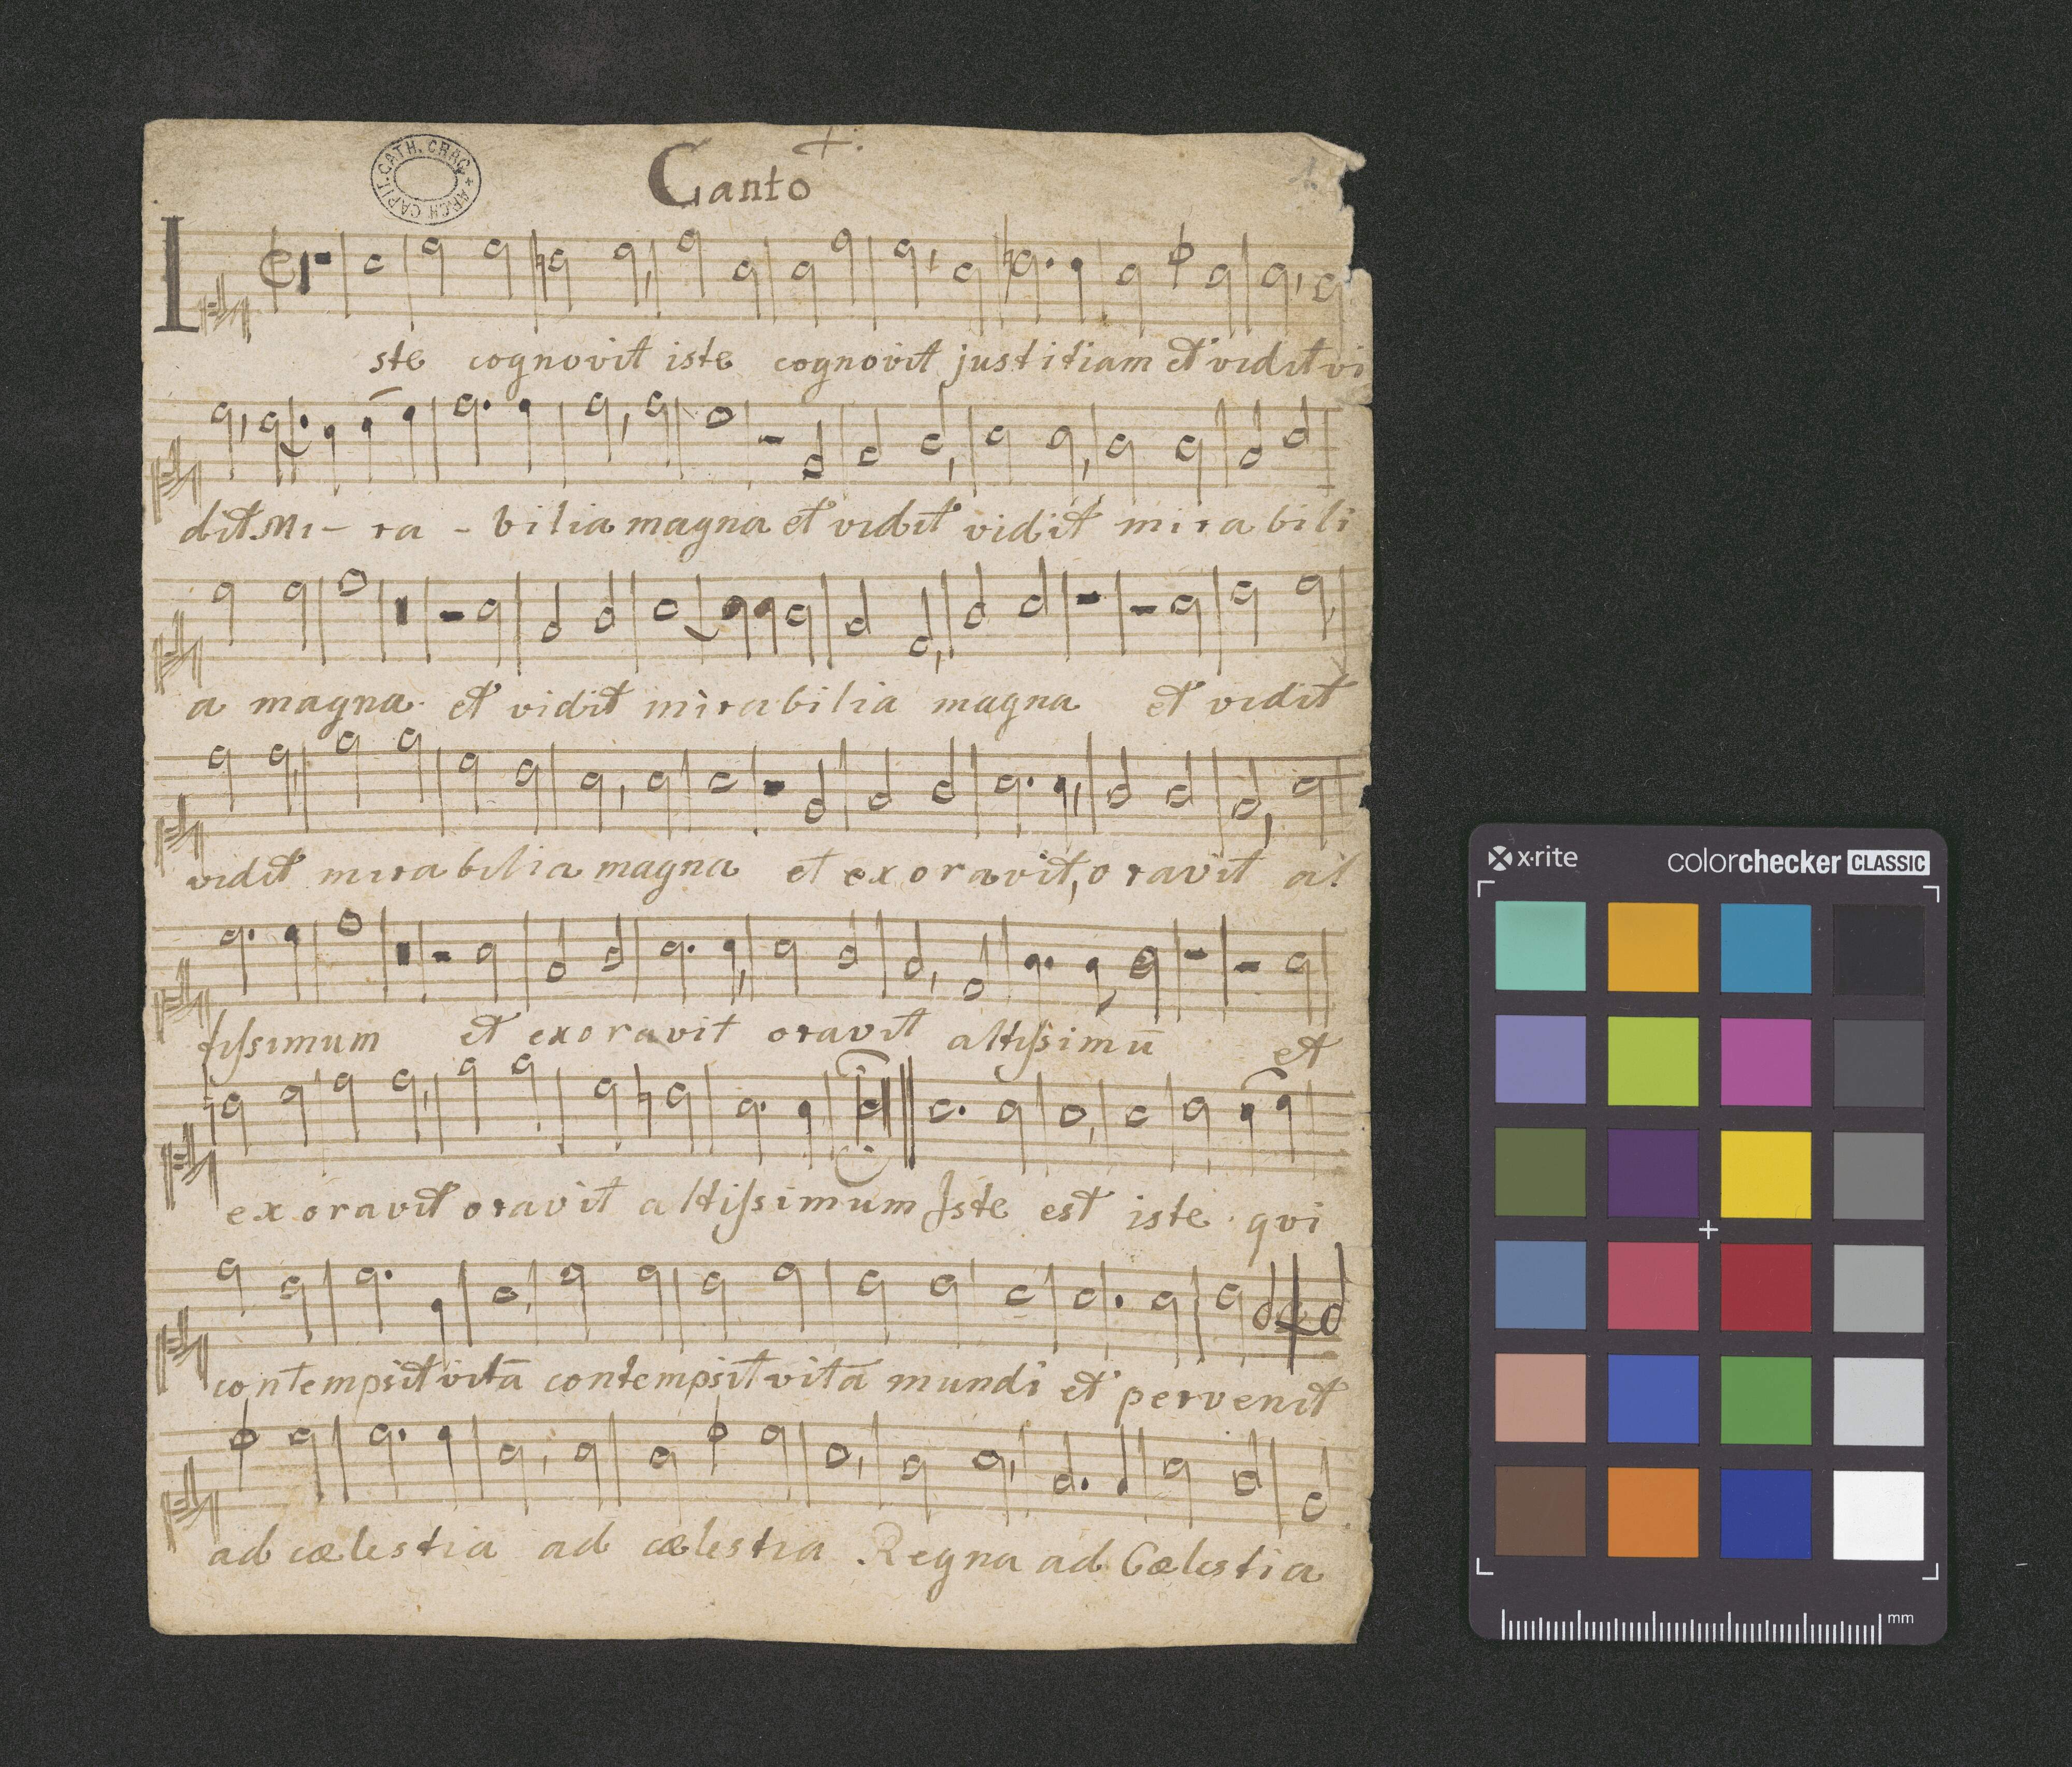 ARCH. CAPIT. CATH. CRAC.
Canto
Iste cognovit iste cognovit justitiam et vidit vi
dit Mi- ra - bilia magna et vidit vidit mirabili
a magna et vidit mirabilia magna et vidit
vidit mirabilia magna et exoravit, oravit al
tissimum et exoravit oravit altissimū et
exoravit oravit altissimum Iste est iste qui
contempsit vitā contempsit vitā mundi et pervenit
ad cælestia ad cælestia Regna ad Cælestia
x·rite colorchecker CLASSIC
mm